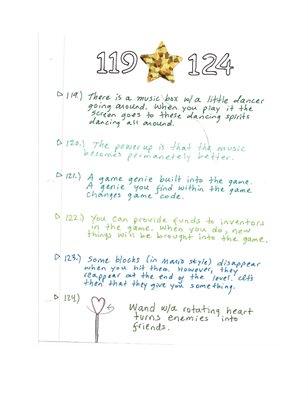 119 124
▷ 119.) There is a music box w/a little dancer
going around. When you play it the
screen goes to these dancing spirits
dancing all around.
▷ 120.) The powerup is that the music
becomes permanetely better.
▷ 121.) A game genie built into the game.
A genie you find within the game
changes game code.
▷ 122.) You can provide funds to inventors
in the game. When you do, new
things will be brought into the game.
▷ 123.) Some blocks (in Mario style) disappear
when you hit them. However, they
reappear at the end of the level.
then that they give you something.
▷ 124.)
Wand w/a rotating heart
turns enemies into
friends.